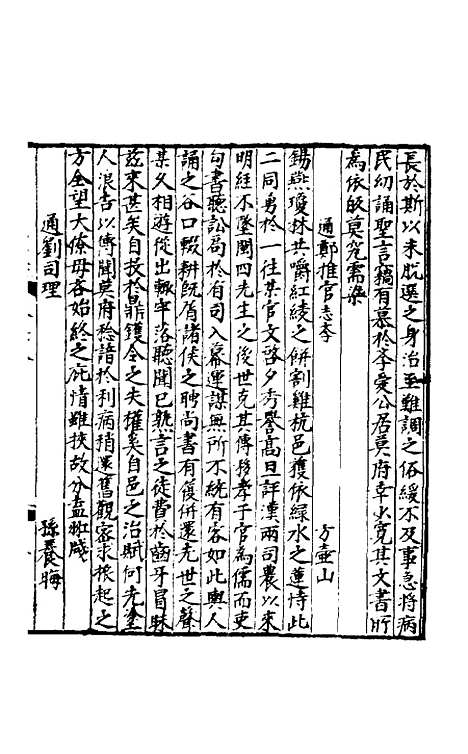 長於斯以未脫選之身治至難調之俗緩不及事急將病
民幼誦聖言竊有慕於孝愛公居莫府幸少寬其文書所
為依皈莫究需染
通鄭推官志孝 方壺山
錫燕瓊林共嚼紅綾之餅割雞杭邑獲依綠水之蓮恃此
二同勇於一往某官文啓夕秀譽高旦評漢兩司農以來
明經不墜閩四先生之後世克其傳移孝子官為儒而吏
句書聽訟局於有司入幕運謀興所不統有客如此輿人
誦之谷口輟耕旣盾諸侯之聘尚書有復併還先世之聲
某久相遊從出輒牢落聽聞已熟言之徒費於齒牙冒昧
茲來甚矣自投於鼎鑊今之失權奚自邑之治賦何先塗
人浪吉以傳聞莫府稔諳於利病稍還舊觀密求振起之
方全望大僚毋吝始終之庇情雖挾故分盍妣箋
通劉司理 孫養晦